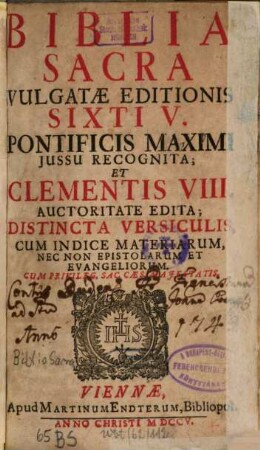 BIBLIA
SACRA
VULGATÆ EDITIONIS
SIXTI V.
PONTIFICIS MAXIMI
JUSSU RECOGNITA;
ET
CLEMENTIS VIII
AUCTORITATE EDITA;
DISTINCTA VERSICULIS
CUM INDICE MATERIARUM,
NEC NON EPISTOLARUM ET
EVANGELIORUM.
CUM PRIVILEG. SAC. CÆS. MAJESTATIS
Anno
1714
IHS
Biblia Sacra
VIENNÆ,
Apud MARTINUM ENDTERUM, Bibliopol.
ANNO CHRISTI MDCCV.
65 BS